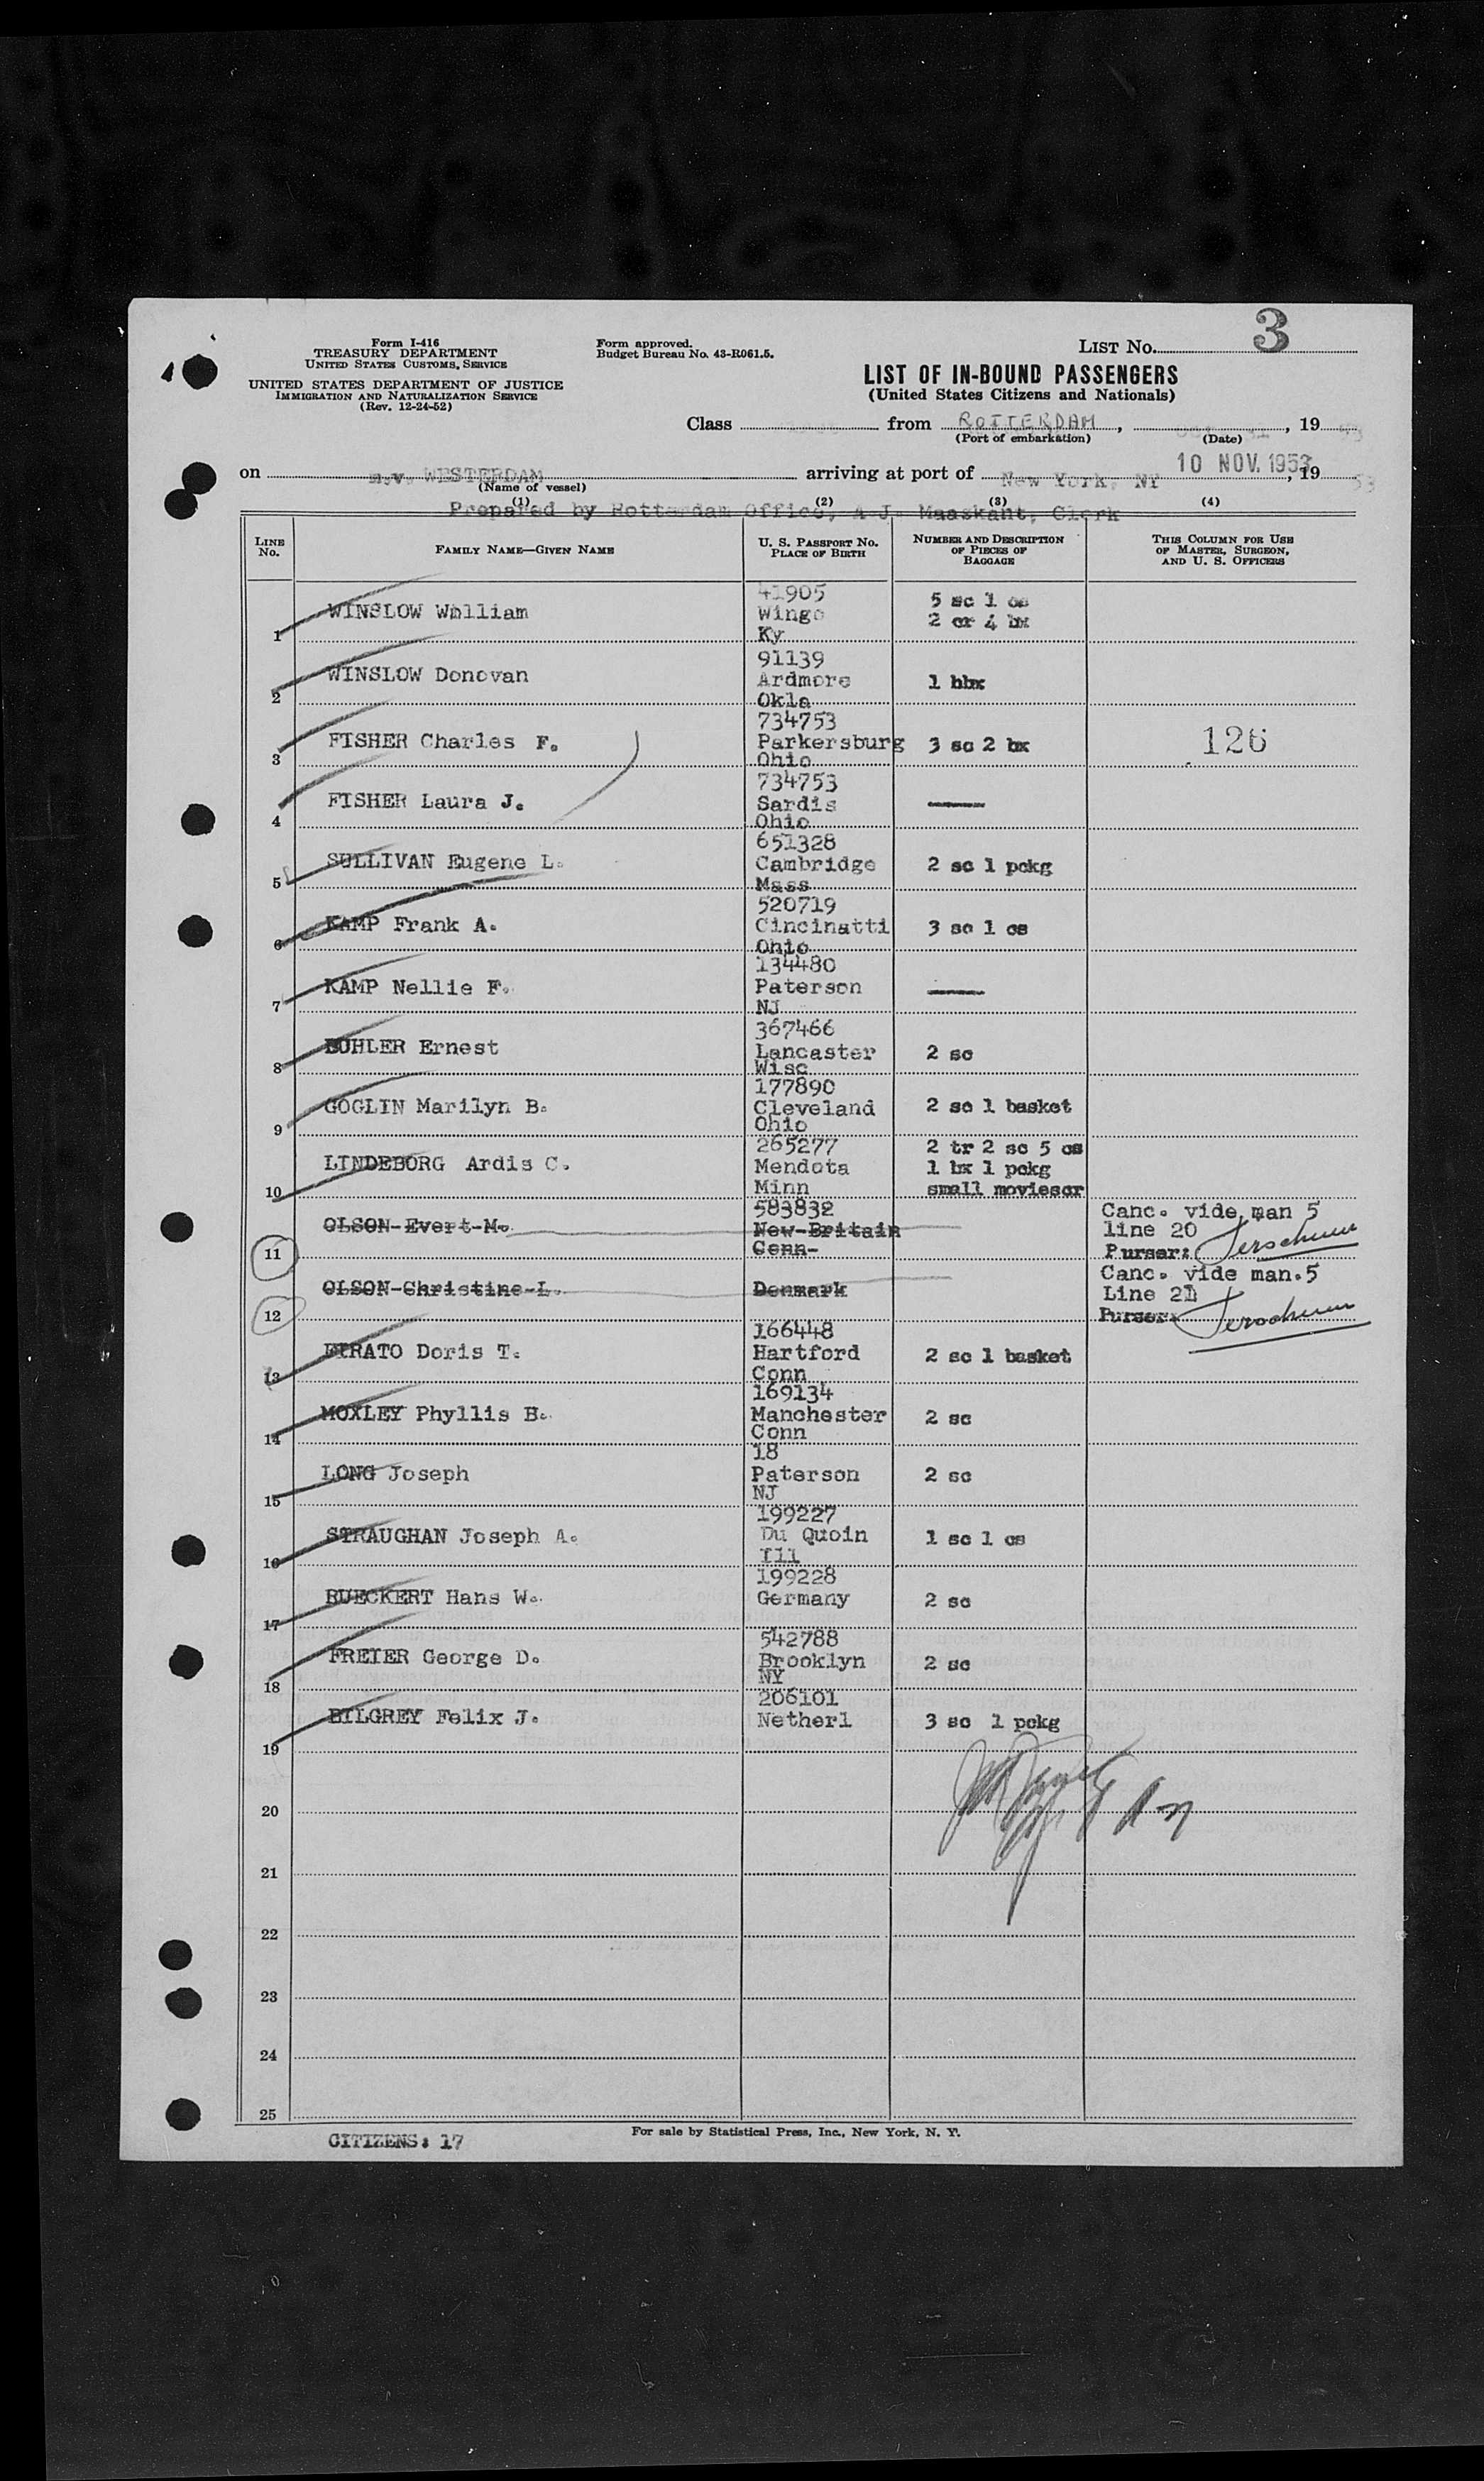 3
Form I-416
TREASURY DEPARTMENT
UNITED STATES CUSTOMS SERVICE
UNITED STATES DEPARTMENT OF JUSTICE
IMMIGRATION AND NATURALIZATION SERVICE
(Rev. 12-24-52)
Form approved.
Budget Bureau No. 43-R061.5.
LIST No.
LIST OF IN-BOUND PASSENGERS
(United States Citizens and Nationals)
Class from ROTTERDAM, , 19
(Port of embarkation) (Date)
on m.v. WESTERDAM arriving at port of New York, NY 10 NOV. 1953, 19 53
(Name of vessel)
(1) (2) (3) (4)
Prepared by Rotterdam Office, A J. Maaskant, Clerk
LINE No. FAMILY NAME—GIVEN NAME U. S. PASSPORT No. PLACE OF BIRTH NUMBER AND DESCRIPTION OF PIECES OF BAGGAGE THIS COLUMN FOR USE OF MASTER, SURGEON, AND U. S. OFFICERS
41905 5 sc 1 cs
WINSLOW William Wingo 2 cr 4 bx
1 Ky
91139
WINSLOW Donovan Ardmore 1 hbx
2 Okla
734753
FISHER Charles F. Parkersburg 3 sc 2 bx 126
3 Ohio
734753
FISHER Laura J. Sardis ——
4 Ohio
651328
SULLIVAN Eugene L. Cambridge 2 sc 1 pckg
5 Mass
520719
KAMP Frank A. Cincinatti 3 sc 1 cs
6 Ohio
134480
KAMP Nellie F. Paterson ——
7 NJ
367466
BUHLER Ernest Lancaster 2 sc
8 Wisc
177890
GOGLIN Marilyn B. Cleveland 2 sc 1 basket
9 Ohio
265277 2 tr 2 sc 5 cs
LINDEBORG Ardis C. Mendota 1 bx 1 pckg
10 Minn small moviescr
583832 Canc. vide man 5
OLSON-Evert-M. New-Britain line 20
11 Conn- Purser:
Canc. vide man.5
OLSON-Christine-L. Denmark Line 21
12 Purser:
166448
Doris T. Hartford 2 sc 1 basket
13 Conn
169134
MOXLEY Phyllis B. Manchester 2 sc
14 Conn
18
LONG Joseph Paterson 2 sc
15 NJ
199227
STRAUGHAN Joseph A. Du Quoin 1 sc 1 cs
16 Ill
199228
RUECKERT Hans W. Germany 2 sc
17
542788
FREIER George D. Brooklyn 2 sc
18 NY
206101
BILGREY Felix J. Netherl 3 sc 1 pckg
19
20
21
22
23
24
25
CITIZENS: 17
For sale by Statistical Press, Inc., New York, N. Y.